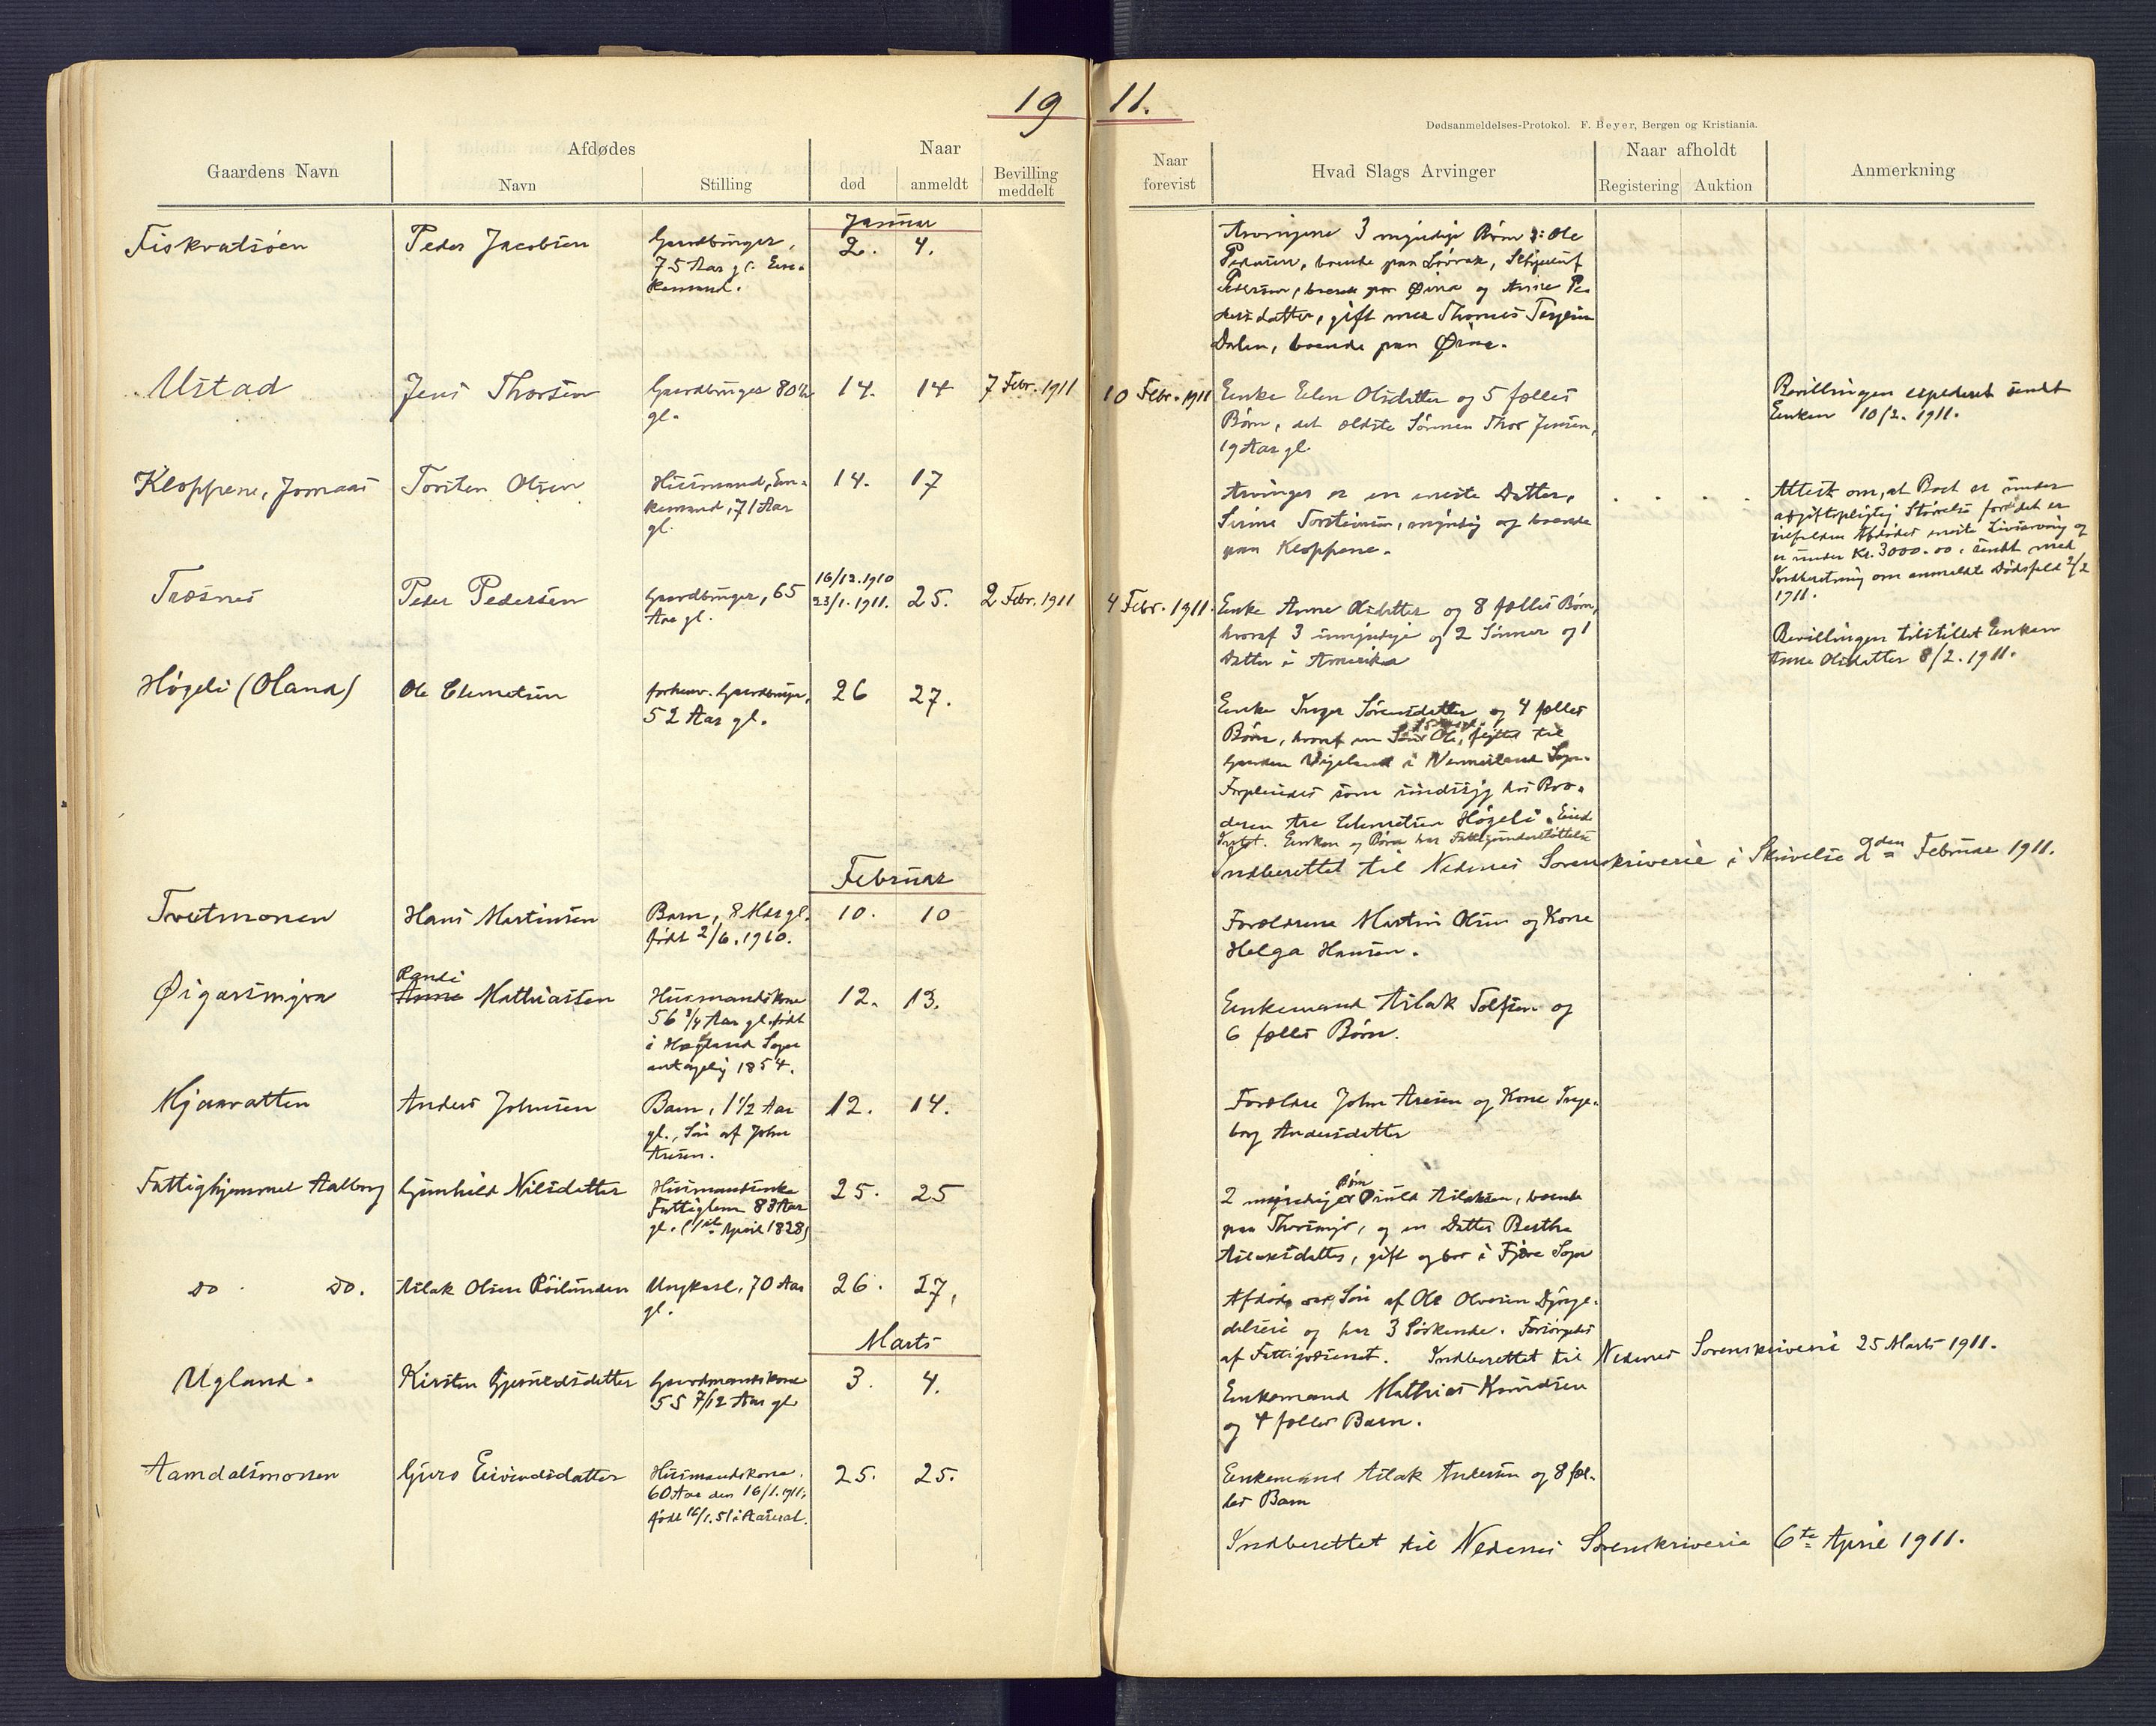 19 11.
Dødsanmeldelses-Protokol. F. Beyer, Bergen og Kristiania.
Gaardens Navn
Afdødes
Navn
Stilling
Naar
død
anmeldt
Bevilling
meddelt
Naar
forevist
Hvad Slags Arvinger
Naar afholdt
Registering
Auktion
Anmerkning
Januar
Fiskvatsøen
Peder Jacobsen
Gaardbruger,
75 Aar gl. En-
kemand.
2. 4.
Arvingene 3 myndige Børn: Ole
Pedersen, boende paa
Pedersen, boende paa Øina og Anne Pe
dersdatter, gift med Thomas Terjesen
Dalen, boende paa Øina.
Ustad
Jens Thorsen
Gaardbruger 80
gl.
14. 14 7 Febr. 1911
10 Febr. 1911
Enke Elen Olsdatter og 5 fælles
Børn, det ældste Sønnen Thor Jensen,
19 Aar gl.
Bevillingen expederet sendt
Enken 10/2. 1911.
Kloppene, Jomaas
Torsten Olsen
Husmand, En-
kemand, 71 Aar
gl.
14. 17
Arvinger er en eneste Datter,
Sirine Torsteinsen, myndig og boende
paa Kloppene.
Attest om, at Boet er under
afgiftspligtig Størrelse fordi det er
tilfalden Afdødes eneste Livsarving og
er under Kr. 3000.00, sendt med
Indberetning om anmeldte Dødsfald 2/2
1911.
Træsnes
Peder Pedersen
Gaardbruger, 65
Aar gl.
16/12.1910
23/1.1911. 25. 2 Febr. 1911
4 Febr. 1911.
Enke Anne Olsdatter og 8 fælles Børn,
hvoraf 3 umyndige og 2 Sønner og 1
Datter i Amerika
Bevillingen tilstillet Enken
Anne Olsdatter 8/2. 1911.
Høgeli (Oland)
Ole Clemetsen
forhenv. Gaardbruger,
52 Aar gl.
26 27.
Enke Inger Sørensdatter og 4 fælles
Børn, hvoraf en Søn Ole, flyttet til
Gaarden Vigeland i Vennesland Sogn.
Forpleiedes som sindssyg hos Bro-
deren Are Clemetsen Høgeli. Eiede
Intet. Enken og Børn har Fattigunderstøttelse
Indberettet til Nedenes Sorenskriverie i Skrivelse 2den Februar 1911.
Februar
Tveitmonen
Hans Martinsen
Barn, 8 Mdr gl.
født 2/6.1910.
10. 10
Forældrene Martin Olsen og Kone
Helga Hansen.
Øigarsmyra
Randi
Anne Mathiassen
Husmandskone
56 3/4 Aar gl. født
i Hægeland Sogn
antagelig 1854.
12. 13.
Enkemand Aslak Tolfsen og
6 fælles Børn.
Mjaavatten
Anders Johnsen
Barn, 1 1/2 Aar
gl., Søn af John
Aresen.
12. 14.
Forældre John Aresen og Kone Inge-
borg Andersdatter
Fattighjemmet Aalborg
Gunhild Nilsdatter
Husmandsenke
Fattiglem 83 Aar
gl. (1ste April 1828)
25. 25
Børn
2 myndige Aslaksen, boende
paa Thorsmyr, og en Datter Berthe
Aslaksdatter, gift og bor i Fjære Sogn
do do.
Aslak Olsen Røilunden
Ungkarl, 70 Aar
gl.
26. 27,
Afdøde var Søn af Ole Olversen
og har 3 Søskende. Forsørgedes
af Fattigvæsenet. Indberettet til Nedenes Sorenskriverie 25 Marts 1911.
Marts
Ugland.
Kirsten Gjeruldsdatter
Gaardmandskone
55 7/12 Aar gl.
3. 4.
Enkemand Mathias Knudsen
og 4 fælles Barn.
Aamdalsmonen
Guro Eivindsdatter
Husmandskone.
60 Aar den 16/1.1911,
født 16/1.51 i Aaseral.
25. 25.
Enkemand Aslak Andersen og 8 fæl-
les Barn
Indberettet til Nedenes Sorenskriverie 6te April 1911.